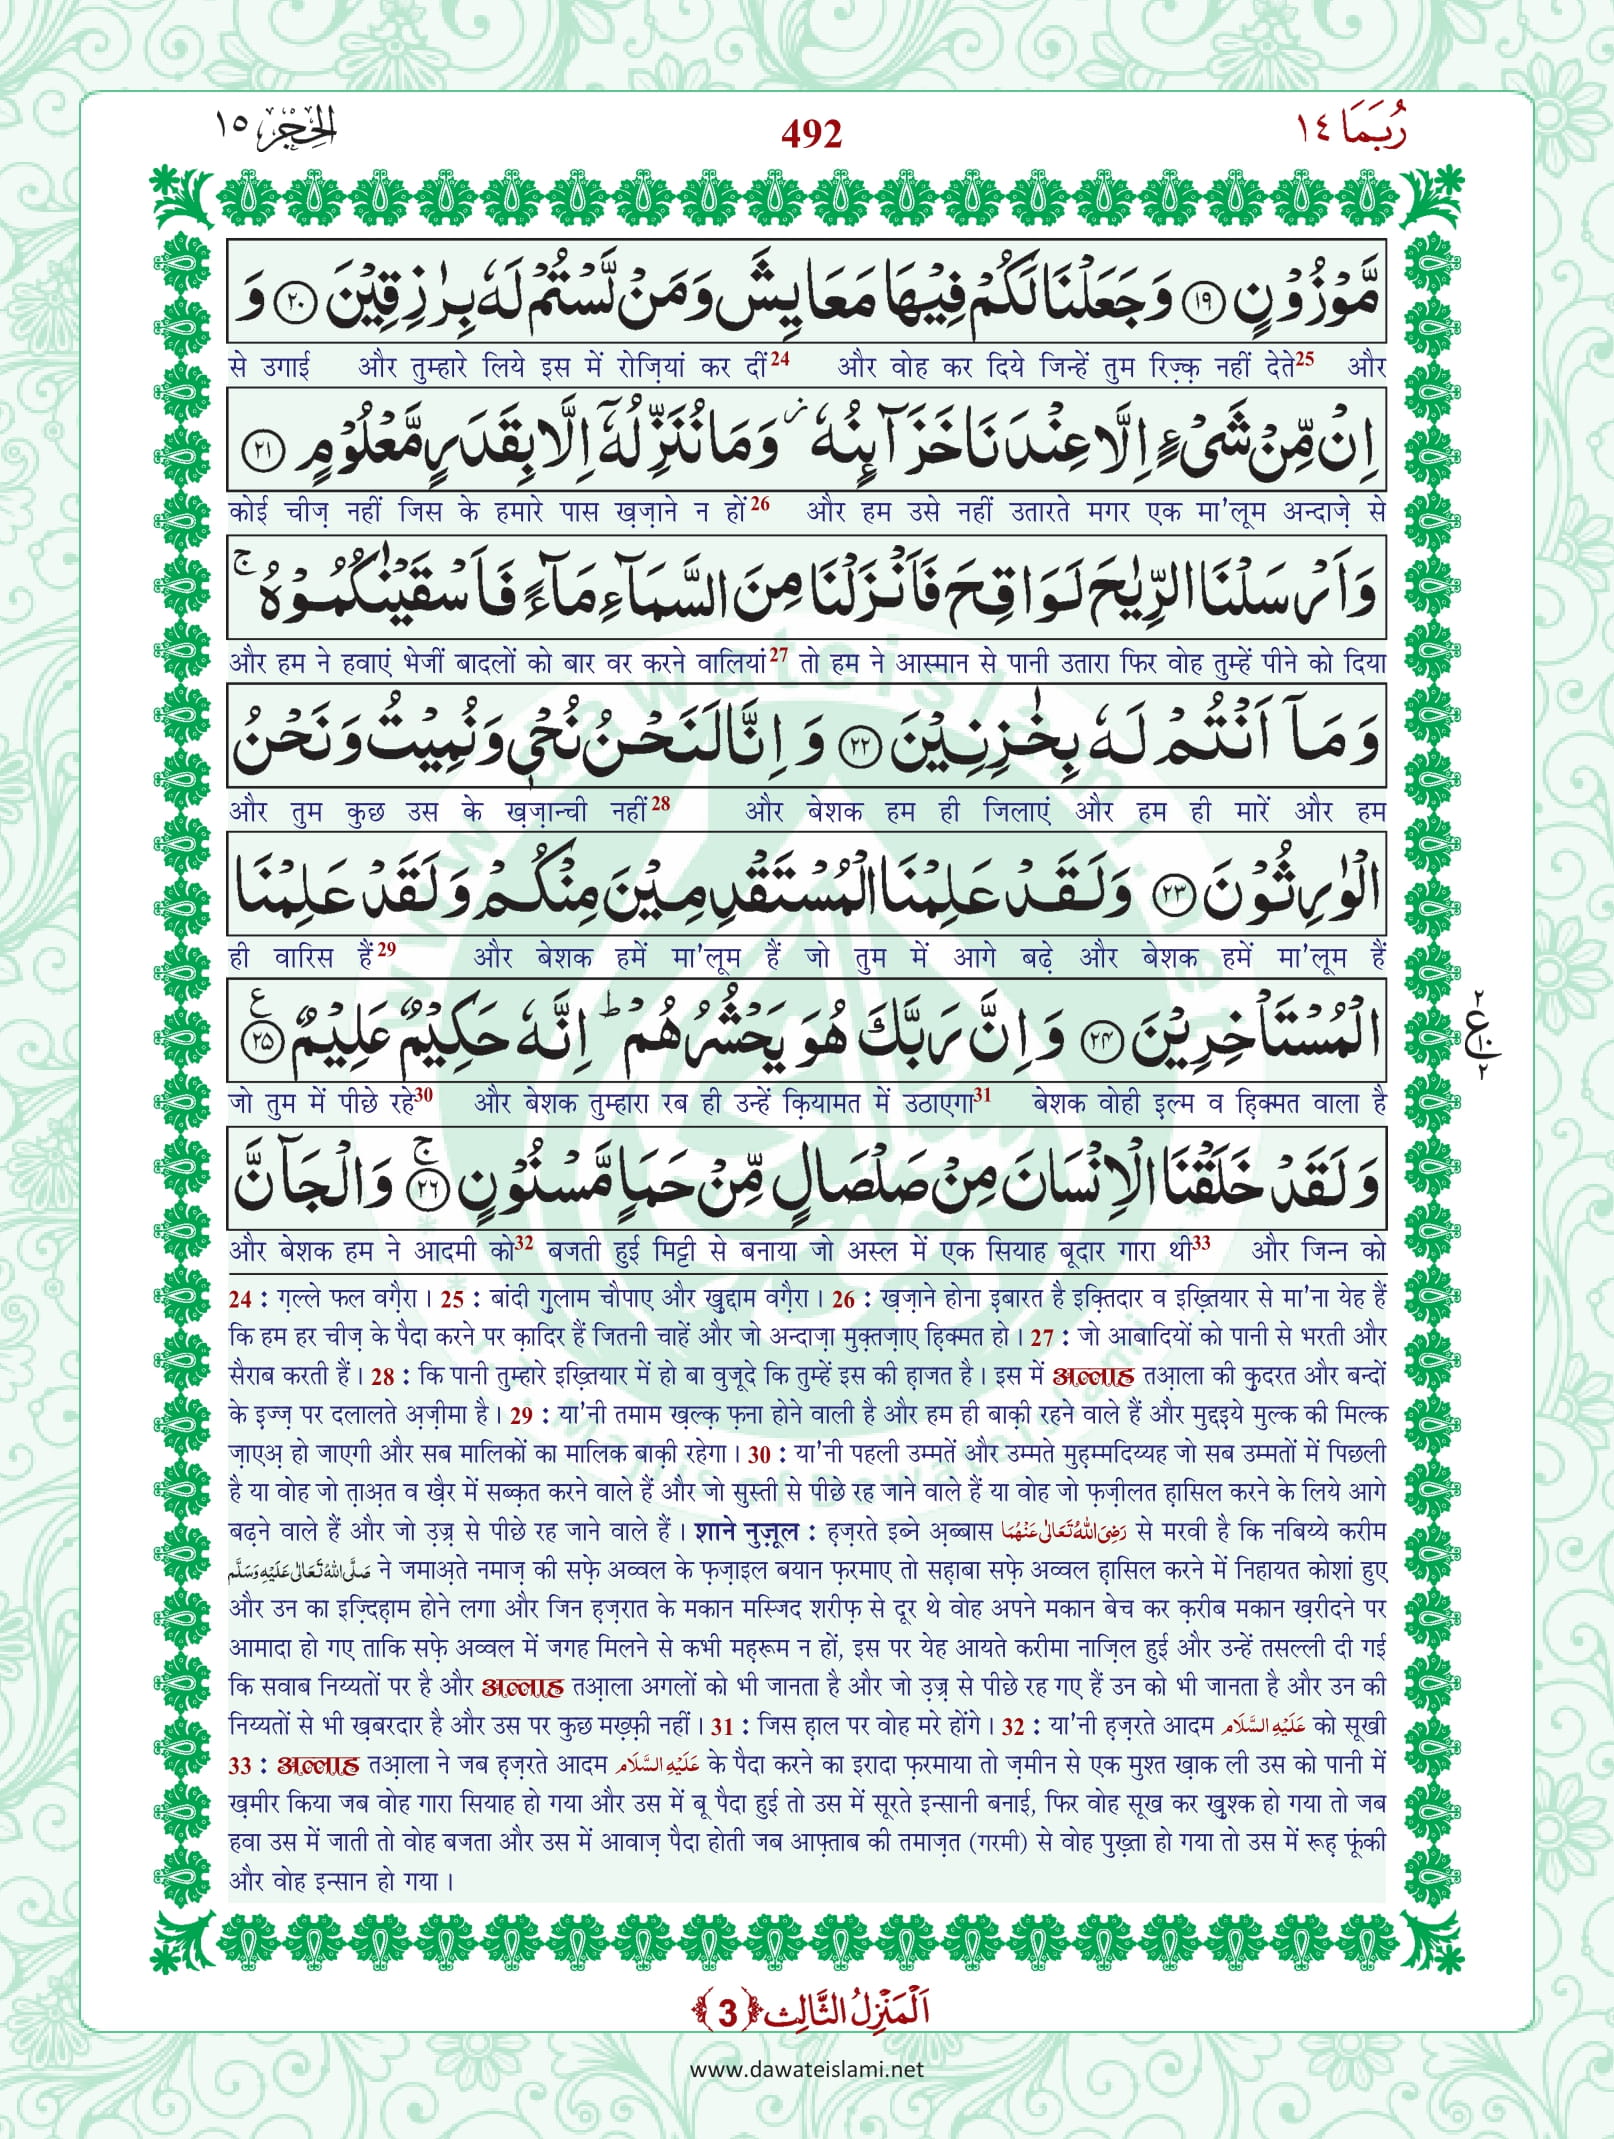 رُبَمَا ١٤
492
الْحِجْر ١٥
مَّوْزُوْنٍ ﴿۱۹﴾ وَ جَعَلْنَا لَكُمْ فِیْهَا مَعَایِشَ وَ مَنْ لَّسْتُمْ لَهٗ بِرٰزِقِیْنَ ﴿۲۰﴾ وَ
से उगाई और तुम्हारे लिये इस में रोज़ियां कर दीं24 और वोह कर दिये जिन्हें तुम रिज़्क़ नहीं देते25 और
اِنْ مِّنْ شَیْءٍ اِلَّا عِنْدَنَا خَزَآىٕنُهٗ ٘ وَ مَا نُنَزِّلُهٗۤ اِلَّا بِقَدَرٍ مَّعْلُوْمٍ ﴿۲۱﴾
कोई चीज़ नहीं जिस के हमारे पास ख़ज़ाने न हों26 और हम उसे नहीं उतारते मगर एक मा'लूम अन्दाज़े से
وَ اَرْسَلْنَا الرِّیٰحَ لَوَاقِحَ فَاَنْزَلْنَا مِنَ السَّمَآءِ مَآءً فَاَسْقَیْنٰكُمُوْهُ ۚ
और हम ने हवाएं भेजीं बादलों को बार वर करने वालियां27 तो हम ने आस्मान से पानी उतारा फिर वोह तुम्हें पीने को दिया
وَ مَاۤ اَنْتُمْ لَهٗ بِخٰزِنِیْنَ ﴿۲۲﴾ وَ اِنَّا لَنَحْنُ نُحْیٖ وَ نُمِیْتُ وَ نَحْنُ
और तुम कुछ उस के ख़ज़ान्ची नहीं28 और बेशक हम ही जिलाएं और हम ही मारें और हम
الْوٰرِثُوْنَ ﴿۲۳﴾ وَ لَقَدْ عَلِمْنَا الْمُسْتَقْدِمِیْنَ مِنْكُمْ وَ لَقَدْ عَلِمْنَا
ही वारिस हैं29 और बेशक हमें मा'लूम हैं जो तुम में आगे बढ़े और बेशक हमें मा'लूम हैं
الْمُسْتَاْخِرِیْنَ ﴿۲۴﴾ وَ اِنَّ رَبَّكَ هُوَ یَحْشُرُهُمْ ؕ اِنَّهٗ حَكِیْمٌ عَلِیْمٌ ﴿۲۵﴾ ع
٢ ع ١٠ ٢
जो तुम में पीछे रहे30 और बेशक तुम्हारा रब ही उन्हें क़ियामत में उठाएगा31 बेशक वोही इल्म व हि़क्मत वाला है
وَ لَقَدْ خَلَقْنَا الْاِنْسَانَ مِنْ صَلْصَالٍ مِّنْ حَمَاٍ مَّسْنُوْنٍ ﴿۲۶﴾ۚ وَ الْجَآنَّ
और बेशक हम ने आदमी को32 बजती हुई मिट्टी से बनाया जो अस्ल में एक सियाह बूदार गारा थी33 और जिन्न को
24 : ग़ल्ले फल वग़ैरा । 25 : बांदी ग़ुलाम चौपाए और ख़ुद्दाम वग़ैरा । 26 : ख़ज़ाने होना इबारत है इक़्तिदार व इख़्तियार से मा'ना येह हैं
कि हम हर चीज़ के पैदा करने पर क़ादिर हैं जितनी चाहें और जो अन्दाज़ा मुक़्तज़ाए हि़क्मत हो । 27 : जो आबादियों को पानी से भरती और
सैराब करती हैं । 28 : कि पानी तुम्हारे इख़्तियार में हो बा वुजूदे कि तुम्हें इस की ह़ाजत है । इस में अल्लाह तआ़ला की क़ुदरत और बन्दों
के इ़ज्ज़ पर दलालते अ़ज़ीमा है । 29 : या'नी तमाम ख़ल्क़ फ़ना होने वाली है और हम ही बाक़ी रहने वाले हैं और मुद्दइ़ये मुल्क की मिल्क
ज़ाएअ़ हो जाएगी और सब मालिकों का मालिक बाक़ी रहेगा । 30 : या'नी पहली उम्मतें और उम्मते मुह़म्मदिय्यह जो सब उम्मतों में पिछली
है या वोह जो त़ाअ़त व ख़ैर में सब्क़त करने वाले हैं और जो सुस्ती से पीछे रह जाने वाले हैं या वोह जो फ़ज़ीलत ह़ासिल करने के लिये आगे
बढ़ने वाले हैं और जो उ़ज़्र से पीछे रह जाने वाले हैं । शाने नुज़ूल : ह़ज़रते इब्ने अ़ब्बास رَضِیَ اللهُ تَعَالٰی عَنْهُمَا से मरवी है कि नबिय्ये करीम
صَلَّی اللهُ تَعَالٰی عَلَیْهِ وَسَلَّم ने जमाअ़ते नमाज़ की सफ़े अव्वल के फ़ज़ाइल बयान फ़रमाए तो सह़ाबा सफ़े अव्वल ह़ासिल करने में निहायत कोशां हुए
और उन का इज़्दिह़ाम होने लगा और जिन ह़ज़रात के मकान मस्जिद शरीफ़ से दूर थे वोह अपने मकान बेच कर क़रीब मकान ख़रीदने पर
आमादा हो गए ताकि सफ़े अव्वल में जगह मिलने से कभी मह़रूम न हों, इस पर येह आयते करीमा नाज़िल हुई और उन्हें तसल्ली दी गई
कि सवाब निय्यतों पर है और अल्लाह तआ़ला अगलों को भी जानता है और जो उ़ज़्र से पीछे रह गए हैं उन को भी जानता है और उन की
निय्यतों से भी ख़बरदार है और उस पर कुछ मख़्फ़ी नहीं । 31 : जिस ह़ाल पर वोह मरे होंगे । 32 : या'नी ह़ज़रते आदम عَلَیْهِ السَّلَام को सूखी
33 : अल्लाह तआ़ला ने जब ह़ज़रते आदम عَلَیْهِ السَّلَام के पैदा करने का इरादा फ़रमाया तो ज़मीन से एक मुश्त ख़ाक ली उस को पानी में
ख़मीर किया जब वोह गारा सियाह हो गया और उस में बू पैदा हुई तो उस में सूरते इन्सानी बनाई, फिर वोह सूख कर ख़ुश्क हो गया तो जब
हवा उस में जाती तो वोह बजता और उस में आवाज़ पैदा होती जब आफ़्ताब की तमाज़त (गरमी) से वोह पुख़्ता हो गया तो उस में रूह़ फूंकी
और वोह इन्सान हो गया ।
اَلْمَنْزِلُ الثَّالِث ﴿3﴾
www.dawateislami.net